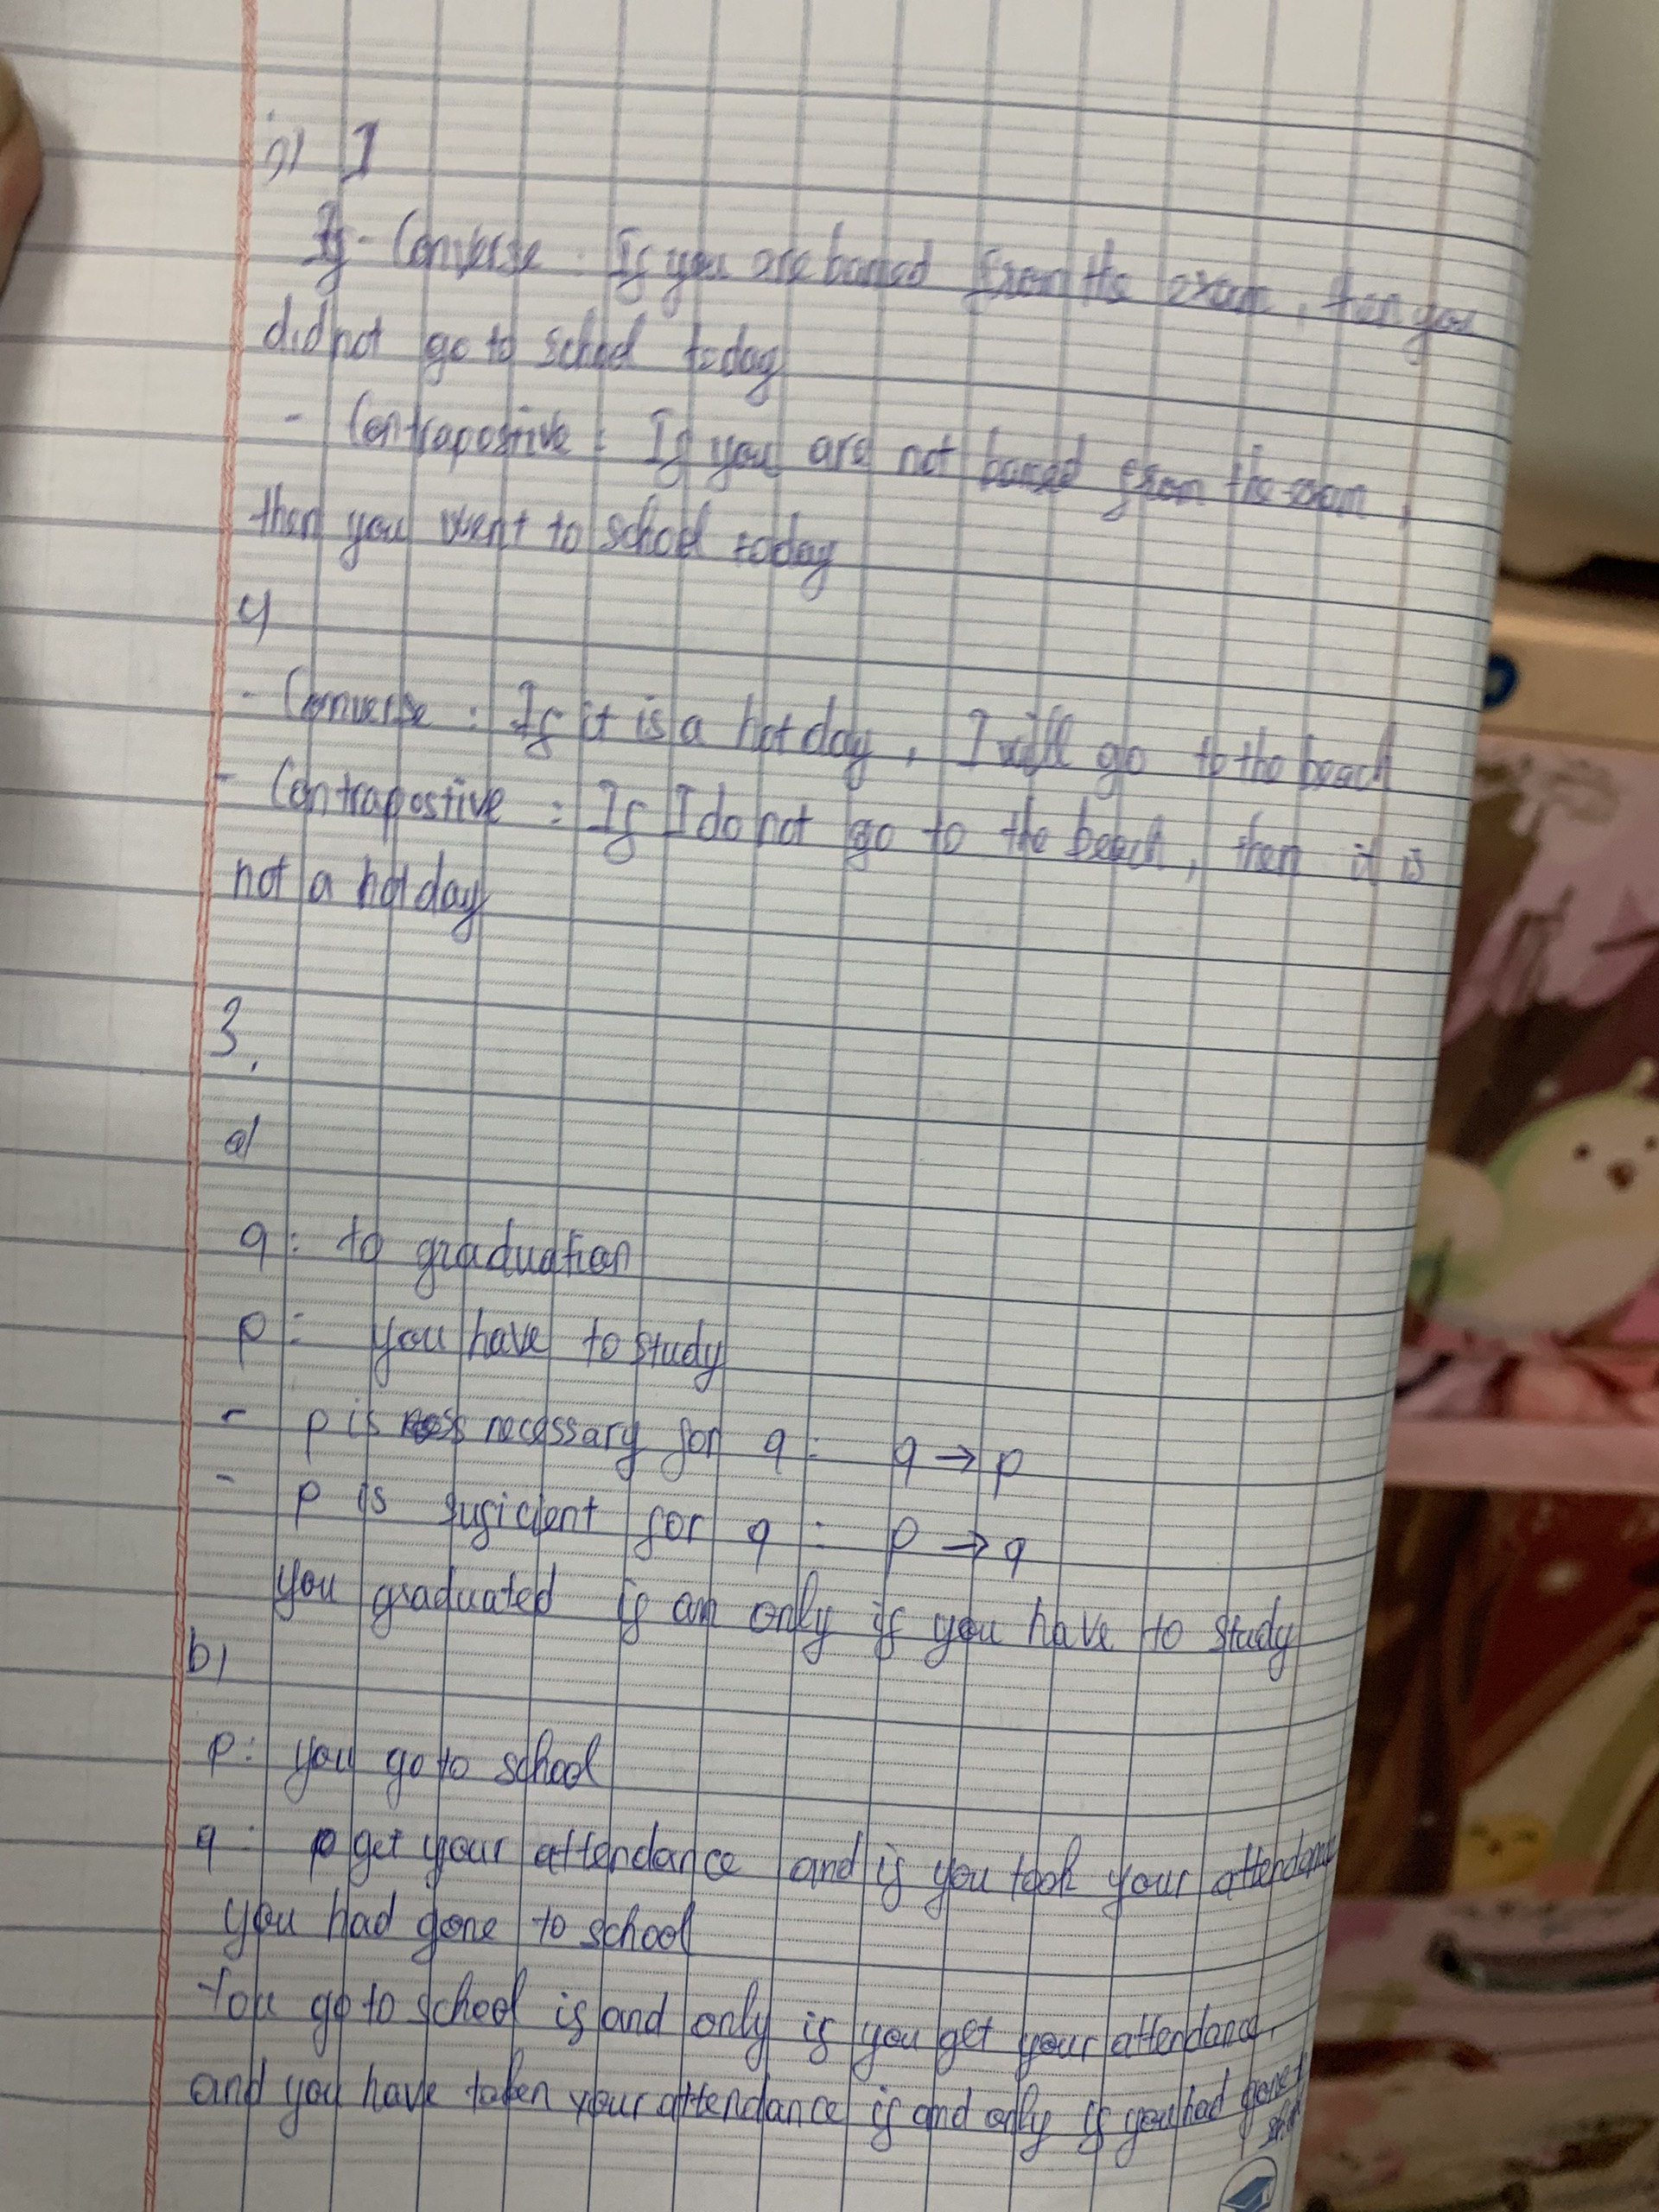 I
If - Converse : If you are banned from the exam, then you
did not go to school today
- Contrapostive : If you are not banned from the exam,
then you went to school today
c)
- Converse : If it is a hot day, I will go to the beach
- Contrapostive : If I do not go to the beach, then it is
not a hot day
3.
a)
q : to graduation
p : you have to study
- p is necessary for q : q → p
- p is suficient for q : p → q
you graduated if an only if you have to study
b)
p : you go to school
q : get your attendance and if you took your attendance
you had gone to school
You go to school if and only if you get your attendance,
and you have taken your attendance if and only if you had gone